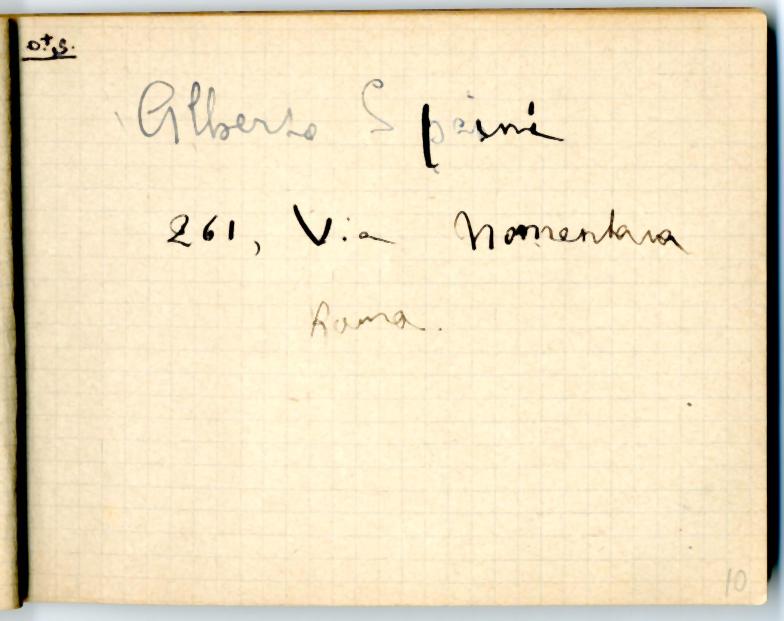 Alberto Spaini
261, Via Nomentana
Roma.
10